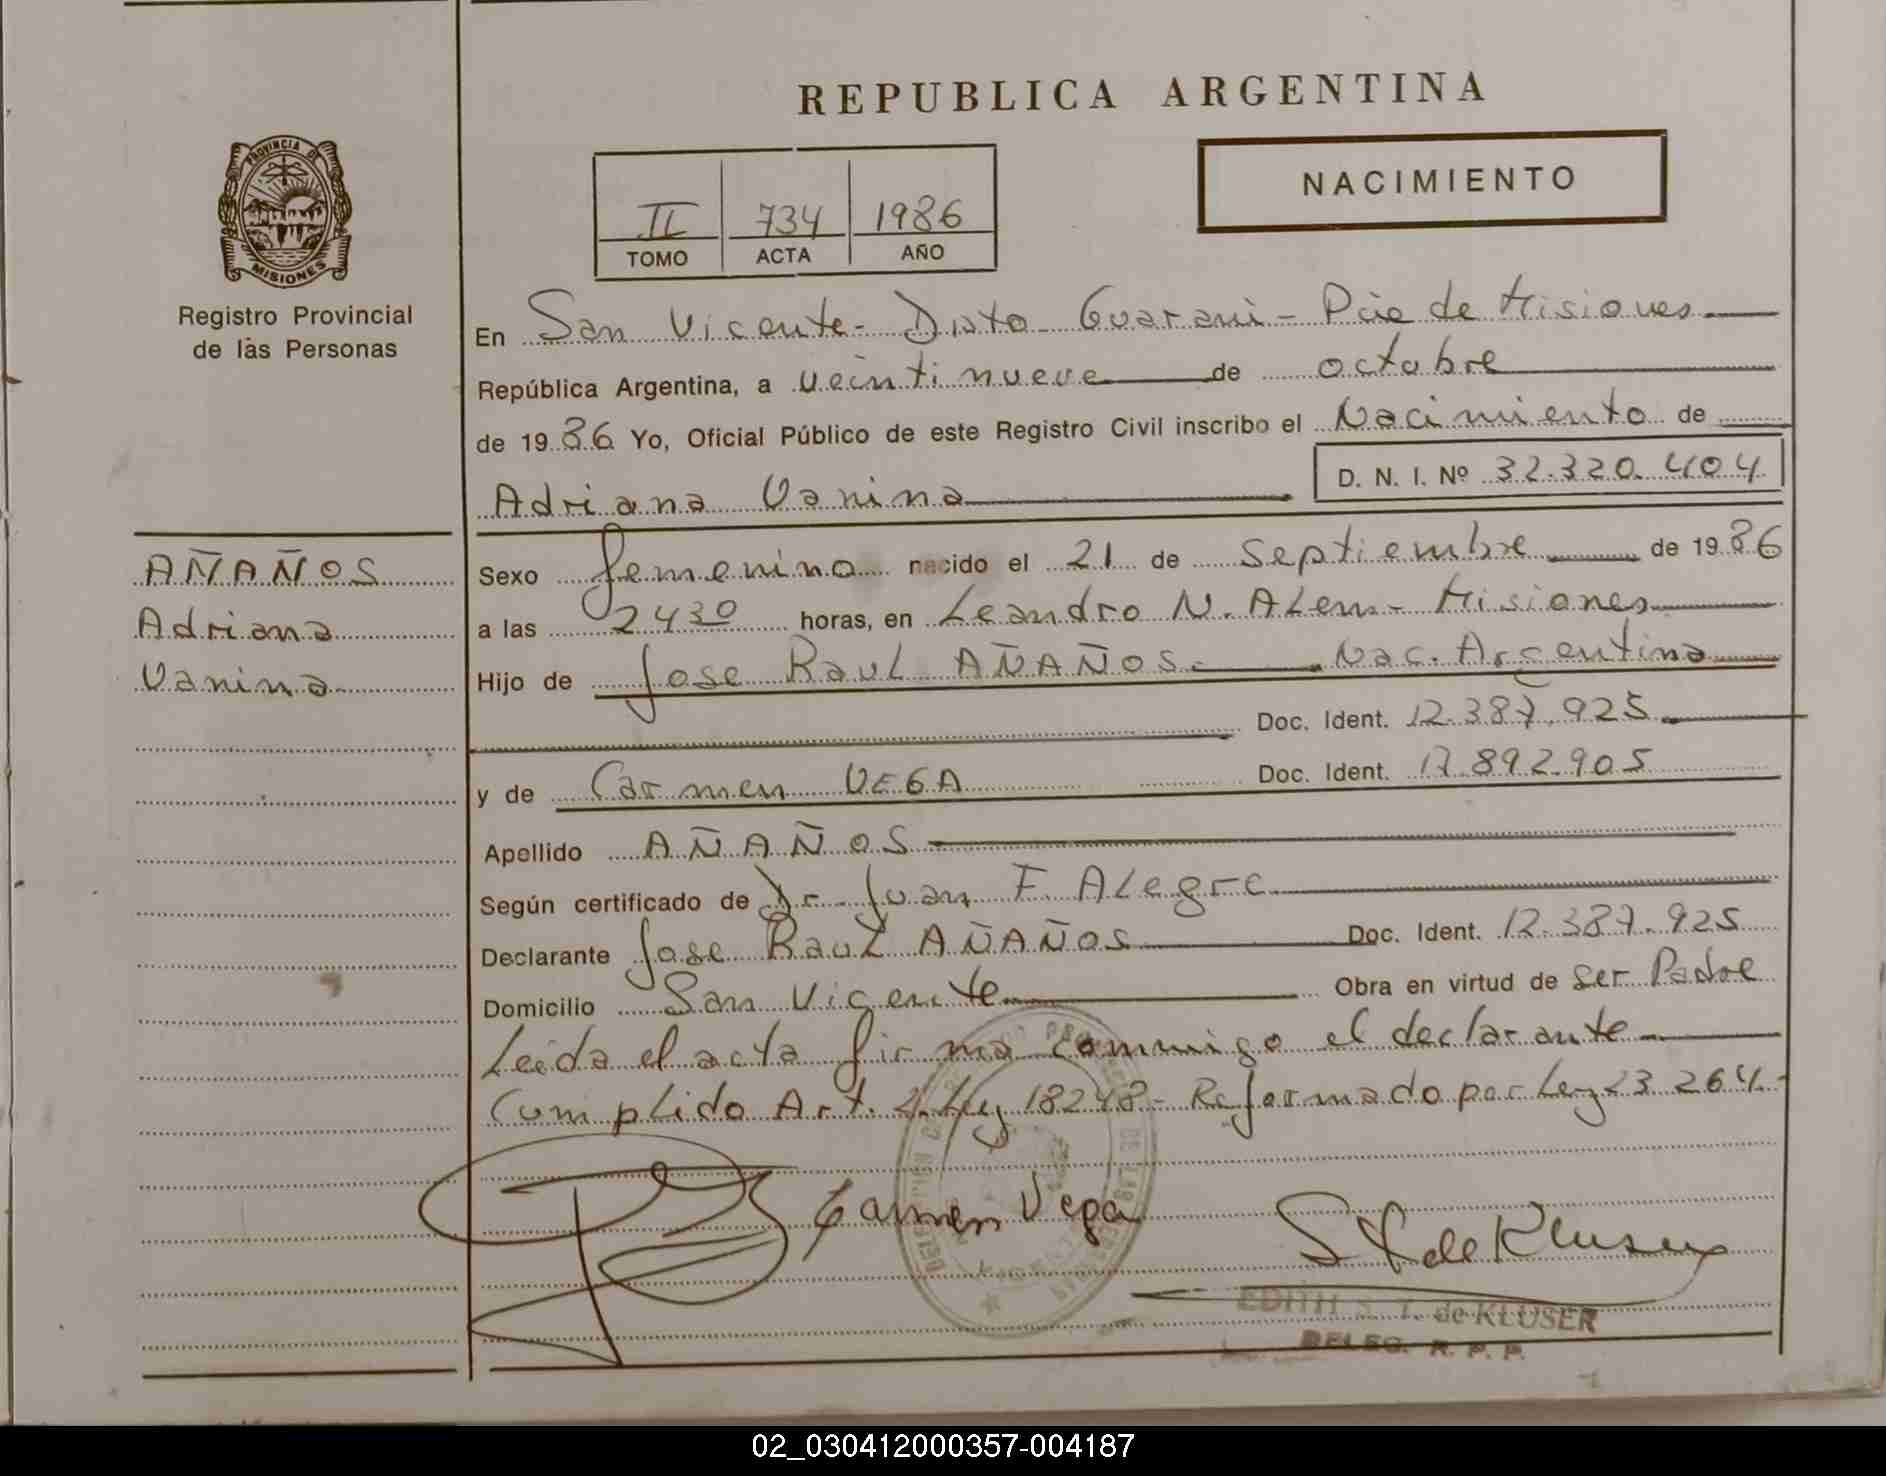 REPUBLICA ARGENTINA
PROVINCIA DE
MISIONES
Registro Provincial
de las Personas
II 734 1986
TOMO ACTA AÑO
NACIMIENTO
En San Vicente - Dpto Guarani - Pcia de Misiones
República Argentina, a veintinueve de octubre
de 1986 Yo, Oficial Público de este Registro Civil inscribo el Nacimiento de
Adriana Vanina D. N. I. Nº 32.320.404
AÑAÑOS
Adriana
Vanina
Sexo femenino nacido el 21 de Septiembre de 1986
a las 2430 horas, en Leandro N. ALem - Misiones
Hijo de Jose RauL AÑAÑOS Nac. Argentina
Doc. Ident. 12.387.925
y de Carmen VEGA Doc. Ident. 17.892.905
Apellido AÑAÑOS
Según certificado de Dr. Juan F. ALegre
Declarante Jose RauL AÑAÑOS Doc. Ident. 12.387.925
Domicilio San Vicente Obra en virtud de Ser Padre
Leida el acta firma conmigo el declarante
CumpLido Art. 2 Ley 18248 - Reformado por Ley 23.264
Carmen Vega
S T de Kluser
EDITH S. T. de KLUSER
DELEG. R. P. P.
02_030412000357-004187